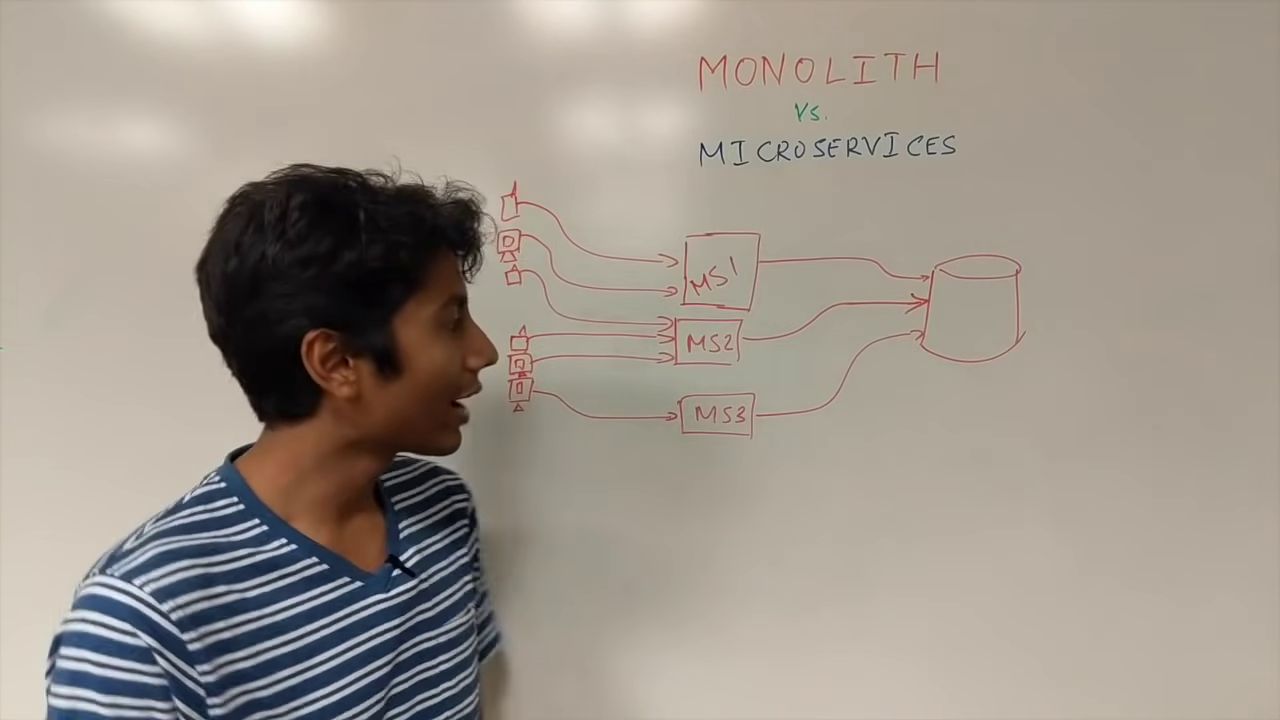 MONOLITH
Vs.
MICROSERVICES
MS1
MS2
MS3